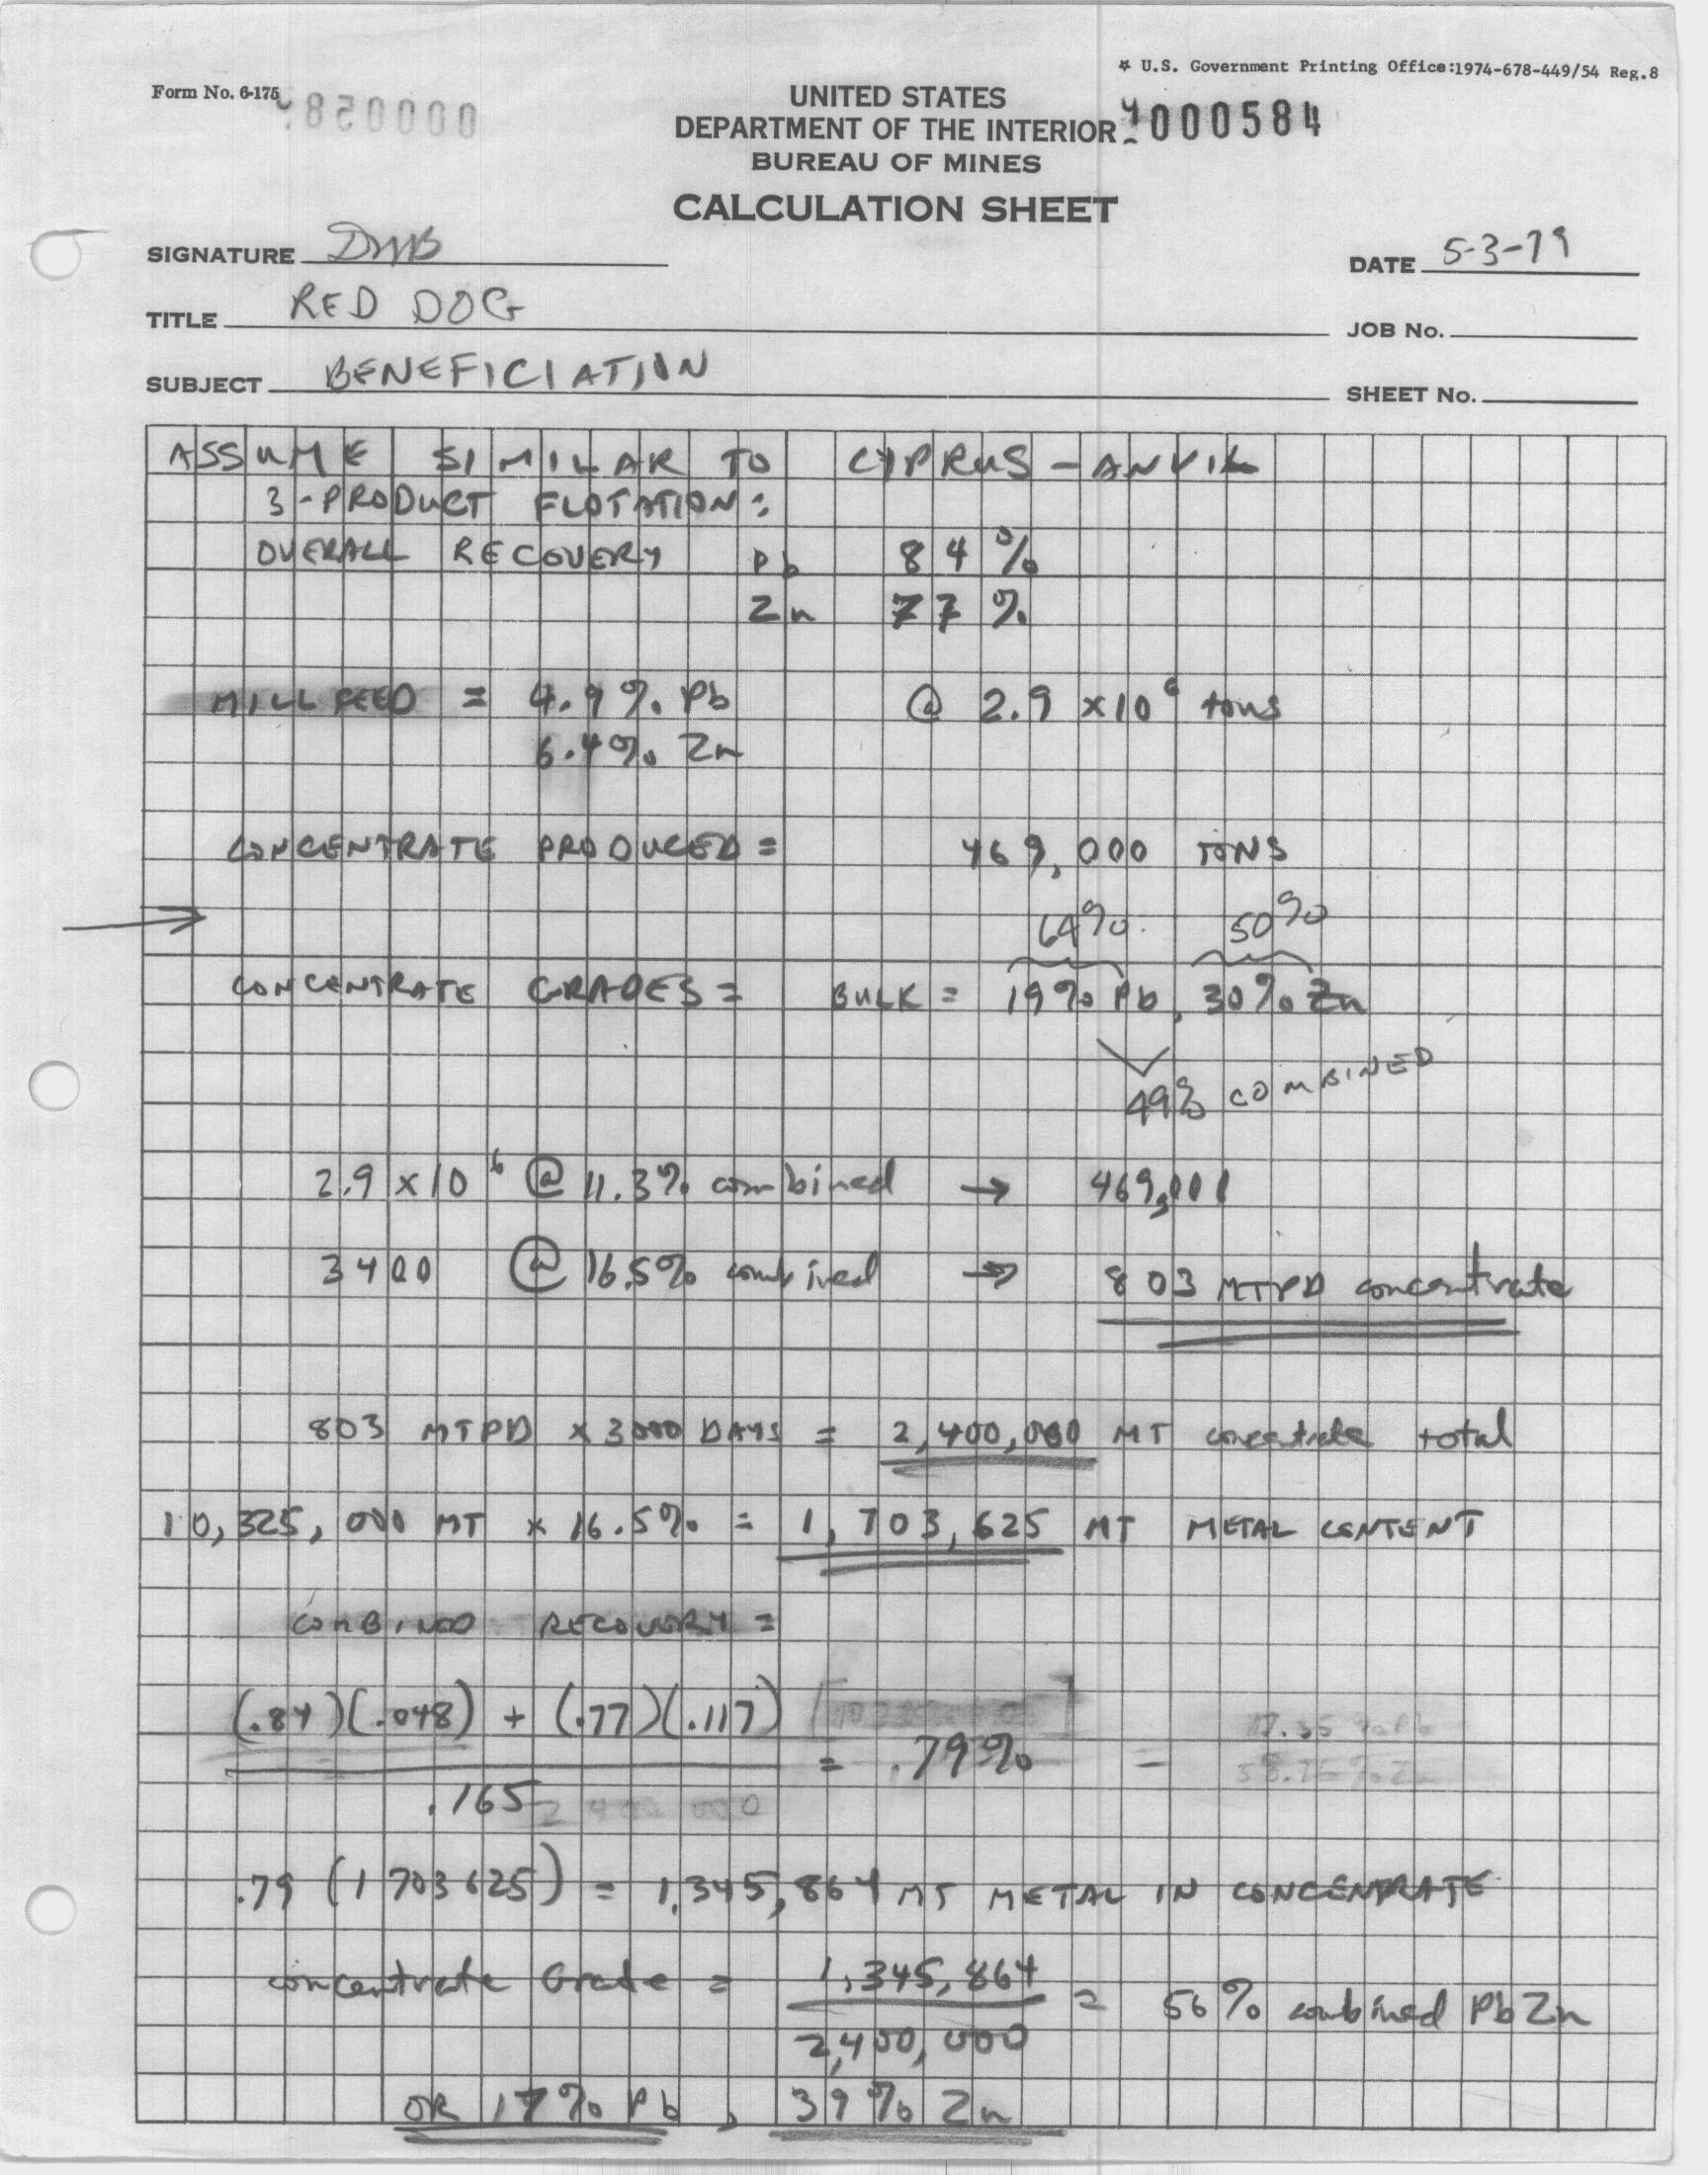 ☆ U.S. Government Printing Office:1974-678-449/54 Reg.8
Form No. 6-175
UNITED STATES
DEPARTMENT OF THE INTERIOR
000584
BUREAU OF MINES
CALCULATION SHEET
SIGNATURE DMB
DATE 5-3-79
TITLE RED DOG
JOB No.
SUBJECT BENEFICIATION
SHEET No.
ASSUME SIMILAR TO CYPRUS-ANVIL
3-PRODUCT FLOTATION:
OVERALL RECOVERY Pb 84%
Zn 77%
MILL FEED = 4.9% Pb @ 2.9 x 10^6 tons
6.4% Zn
CONCENTRATE PRODUCED = 469,000 TONS
64% 50%
CONCENTRATE GRADES = BULK = 19% Pb, 30% Zn
49% COMBINED
2.9 x 10^6 @ 11.3% combined → 469,000
3400 @ 16.5% combined → 803 MTPD concentrate
803 MTPD x 3000 DAYS = 2,400,000 MT concentrate total
10,325,000 MT x 16.5% = 1,703,625 MT METAL CONTENT
COMBINED RECOVERY =
(.84)(.048) + (.77)(.117)
= .79% =
.165
.79 (1703625) = 1,345,864 MT METAL IN CONCENTRATE
concentrate Grade = 1,345,864 = 56% combined Pb Zn
2,400,000
OR 17% Pb, 39% Zn